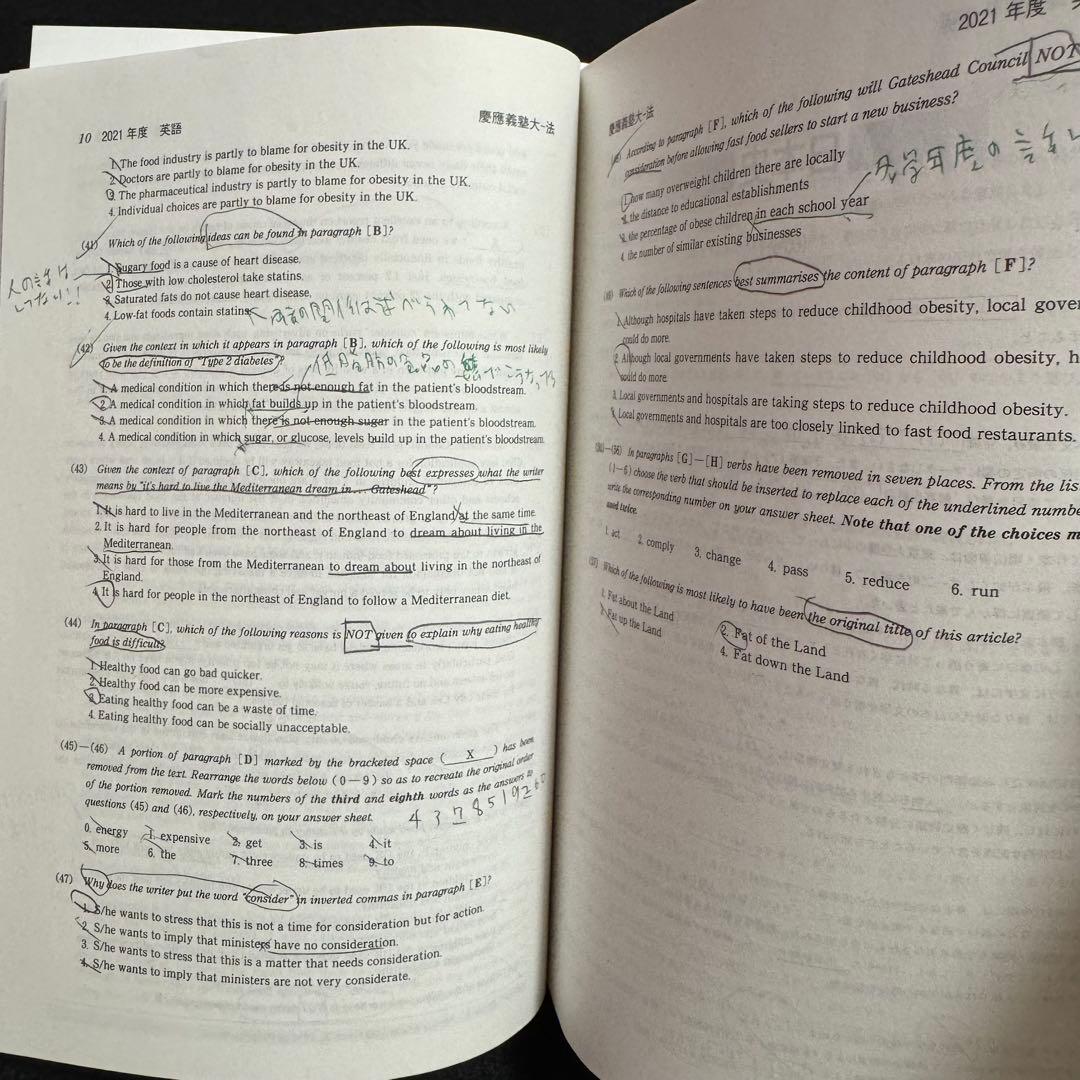 10 2021年度 英語
慶應義塾大-法
1. The food industry is partly to blame for obesity in the UK.
2. Doctors are partly to blame for obesity in the UK.
3. The pharmaceutical industry is partly to blame for obesity in the UK.
4. Individual choices are partly to blame for obesity in the UK.
(41) Which of the following ideas can be found in paragraph [B]?
1. Sugary food is a cause of heart disease.
2. Those with low cholesterol take statins.
3. Saturated fats do not cause heart disease.
4. Low-fat foods contain statins.
(42) Given the context in which it appears in paragraph [B], which of the following is most likely
to be the definition of "Type 2 diabetes"?
1. A medical condition in which there is not enough fat in the patient's bloodstream.
2. A medical condition in which fat builds up in the patient's bloodstream.
3. A medical condition in which there is not enough sugar in the patient's bloodstream.
4. A medical condition in which sugar, or glucose, levels build up in the patient's bloodstream.
(43) Given the context of paragraph [C], which of the following best expresses what the writer
means by "it's hard to live the Mediterranean dream in... Gateshead"?
1. It is hard to live in the Mediterranean and the northeast of England at the same time.
2. It is hard for people from the northeast of England to dream about living in the
Mediterranean.
3. It is hard for those from the Mediterranean to dream about living in the northeast of
England.
4. It is hard for people in the northeast of England to follow a Mediterranean diet.
(44) In paragraph [C], which of the following reasons is NOT given to explain why eating healthy
food is difficult?
1. Healthy food can go bad quicker.
2. Healthy food can be more expensive.
3. Eating healthy food can be a waste of time.
4. Eating healthy food can be socially unacceptable.
(45)―(46) A portion of paragraph [D] marked by the bracketed space ( X ) has been
removed from the text. Rearrange the words below (0―9) so as to recreate the original order
of the portion removed. Mark the numbers of the third and eighth words as the answers to
questions (45) and (46), respectively, on your answer sheet.
4 3 7 8 5 1 9 2 6 0
0. energy 1. expensive 2. get 3. is 4. it
5. more 6. the 7. three 8. times 9. to
(47) Why does the writer put the word "consider" in inverted commas in paragraph [E]?
1. S/he wants to stress that this is not a time for consideration but for action.
2. S/he wants to imply that ministers have no consideration.
3. S/he wants to stress that this is a matter that needs consideration.
4. S/he wants to imply that ministers are not very considerate.
2021年度
慶應義塾大-法
According to paragraph [F], which of the following will Gateshead Council NOT
consideration before allowing fast food sellers to start a new business?
1. how many overweight children there are locally
2. the distance to educational establishments
3. the percentage of obese children in each school year
4. the number of similar existing businesses
Which of the following sentences best summarises the content of paragraph [F]?
1. Although hospitals have taken steps to reduce childhood obesity, local gove
could do more.
2. Although local governments have taken steps to reduce childhood obesity, h
could do more.
3. Local governments and hospitals are taking steps to reduce childhood obesity.
4. Local governments and hospitals are too closely linked to fast food restaurants.
In paragraphs [G]―[H] verbs have been removed in seven places. From the lis
(1―6) choose the verb that should be inserted to replace each of the underlined numbe
write the corresponding number on your answer sheet. Note that one of the choices m
used twice.
1. act 2. comply 3. change 4. pass 5. reduce 6. run
Which of the following is most likely to have been the original title of this article?
1. Fat about the Land 2. Fat of the Land
3. Fat up the Land 4. Fat down the Land